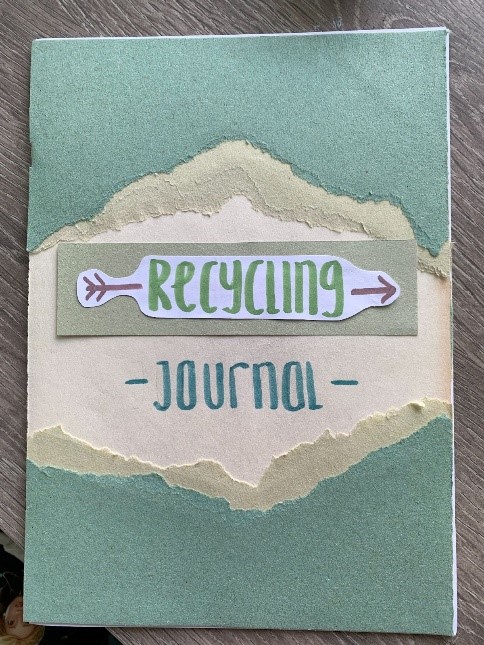 RecycLing
- Journal -